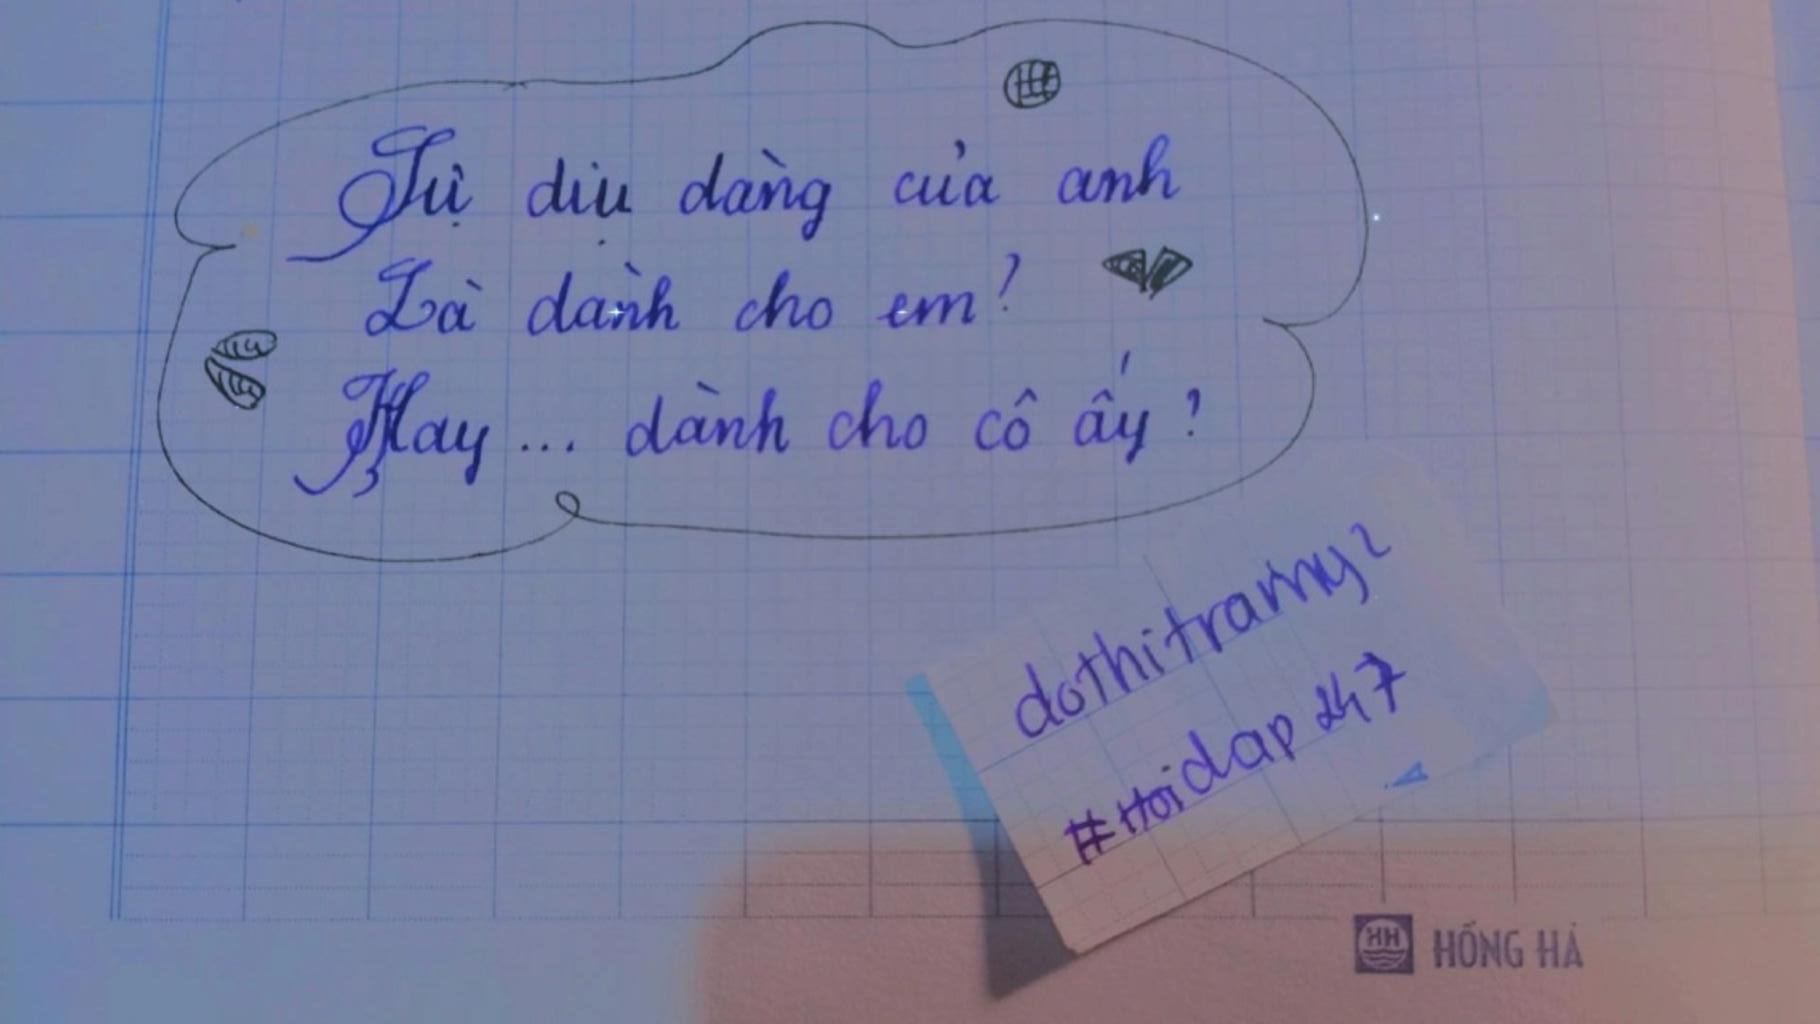 Sự dịu dàng của anh
Là dành cho em?
Hay... dành cho cô ấy?
#Hoidap247
HỒNG HÀ